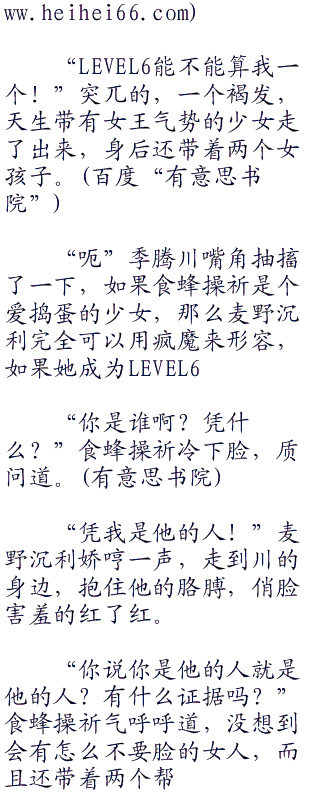 ww.heihei66.com)
“LEVEL6能不能算我一
个！”突兀的，一个褐发，
天生带有女王气势的少女走
了出来，身后还带着两个女
孩子。(百度“有意思书
院”)
“呃”季腾川嘴角抽搐
了一下，如果食蜂操祈是个
爱捣蛋的少女，那么麦野沉
利完全可以用疯魔来形容，
如果她成为LEVEL6
“你是谁啊？凭什
么？”食蜂操祈冷下脸，质
问道。(有意思书院)
“凭我是他的人！”麦
野沉利娇哼一声，走到川的
身边，抱住他的胳膊，俏脸
害羞的红了红。
“你说你是他的人就是
他的人？有什么证据吗？”
食蜂操祈气呼呼道，没想到
会有怎么不要脸的女人，而
且还带着两个帮